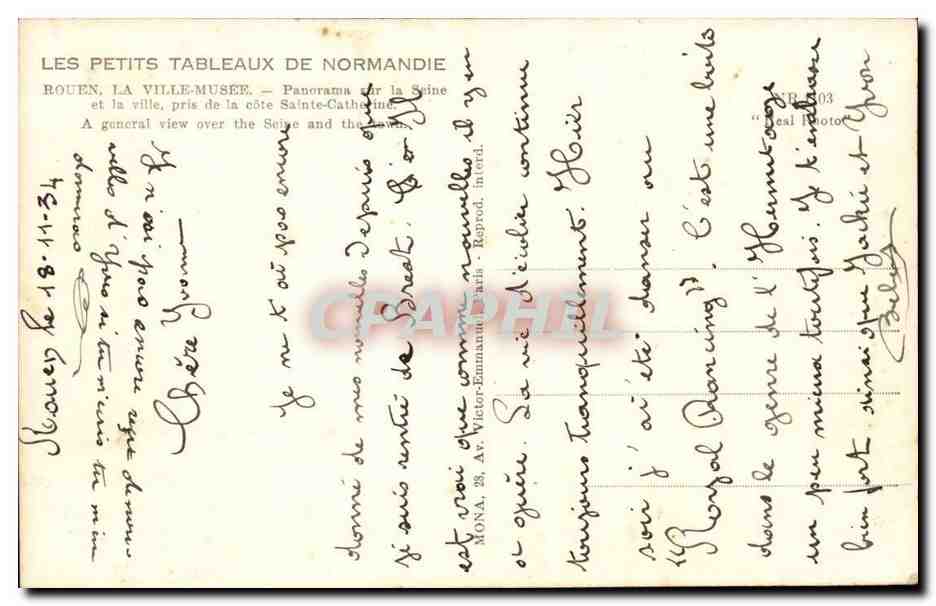 LES PETITS TABLEAUX DE NORMANDIE
ROUEN, LA VILLE-MUSÉE. — Panorama sur la Seine
et la ville, pris de la côte Sainte-Catherine.
A general view over the Seine and the town.
NR 103
"Real Photo"
MONA, 28, Av. Victor-Emmanuel, Paris - Reprod. interd.
CPAPHIL
Rouen, le 18-11-34
Chère
Je ne t'ai pas encore
donné de mes nouvelles depuis que
je suis rentré de Brest. Il
est vrai que comme nouvelles il y en
a guère. La vie d'écolier continue
toujours tranquillement. Hier
soir j'ai été danser au
"Royal Dancing". C'est une boîte
dans le genre de l'Hermitage
un peu mieux toutefois. Je t'embrasse
bien fort ainsi que Jackie et Yvon
Je n'ai pas encore reçu de nou-
velles d'Yves si tu m'écris tu m'en
donneras